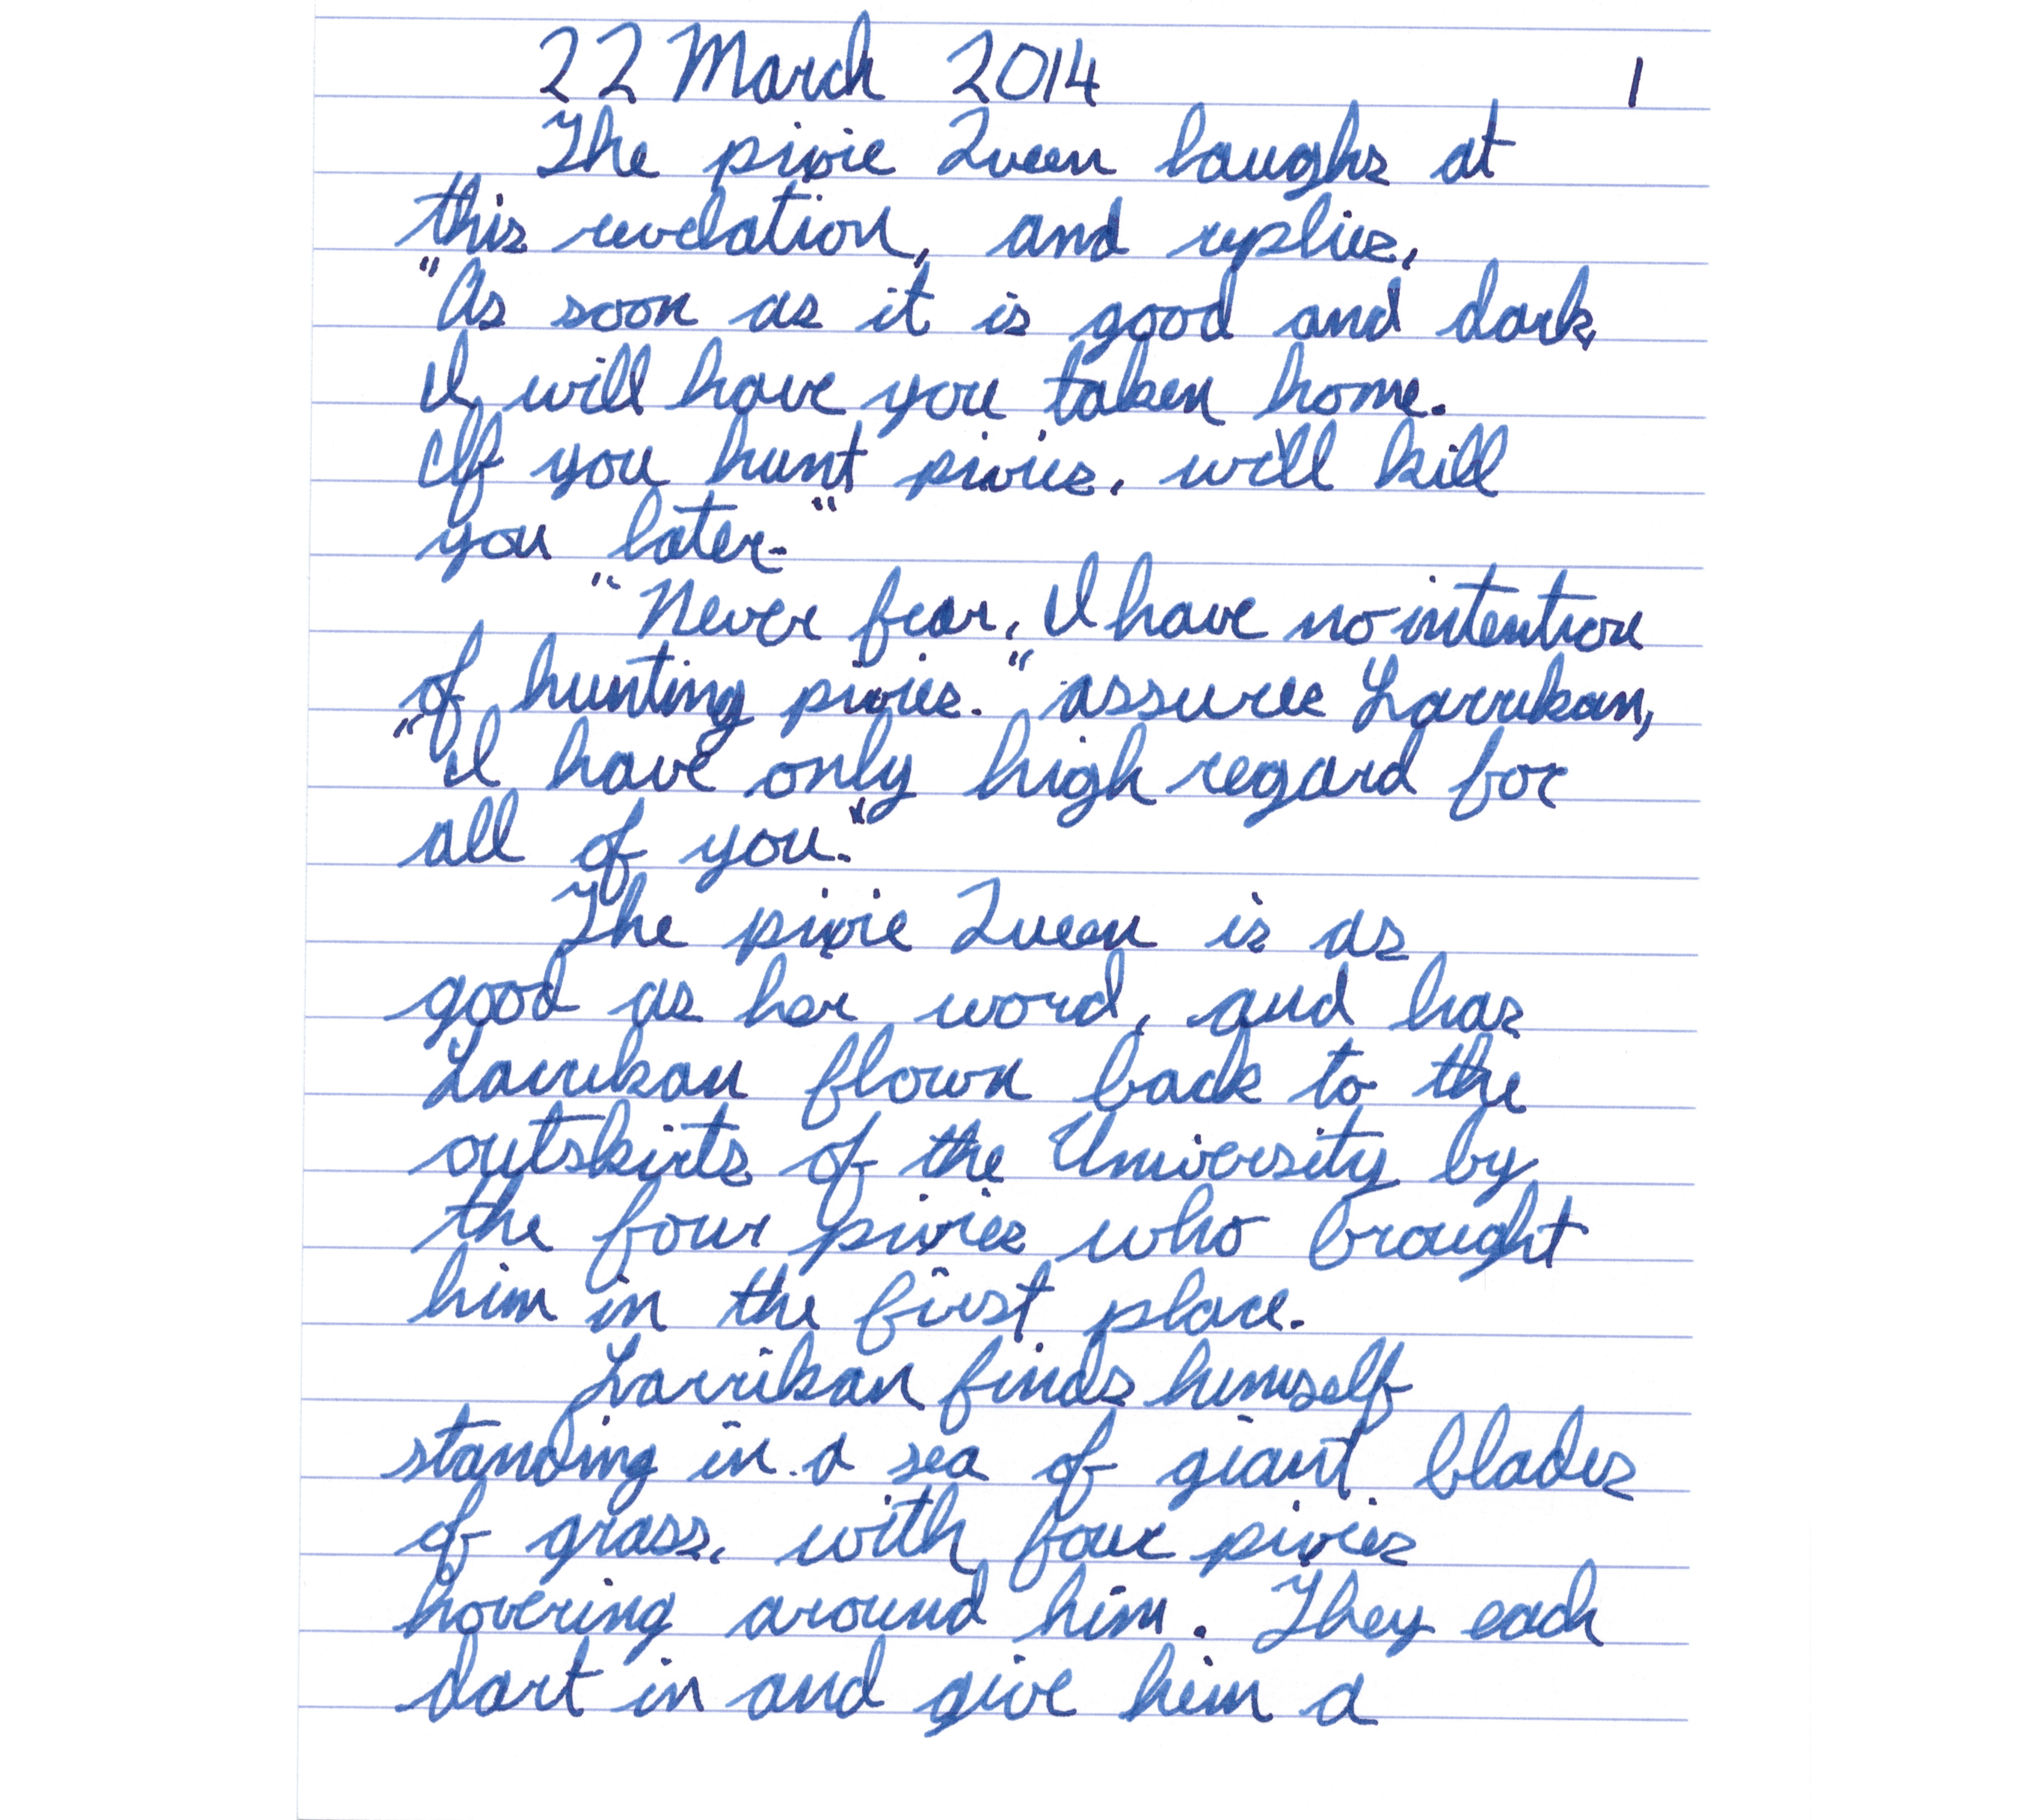 22 March 2014 1
The pixie Queen laughs at
this revelation, and replies,
"As soon as it is good and dark,
I will have you taken home.
If you hunt pixies, we'll kill
you later."
"Never fear, I have no intention
of hunting pixies." assures Larrikan,
"I have only high regard for
all of you."
The pixie Queen is as
good as her word, and has
Larrikan flown back to the
outskirts of the University by
the four pixies who brought
him in the first place.
Larrikan finds himself
standing in a sea of giant blades
of grass, with four pixies
hovering around him. They each
dart in and give him a